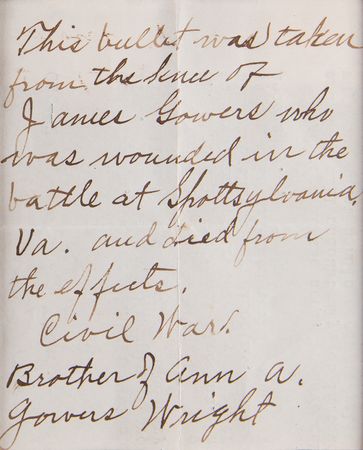 This bullet was taken
from the knee of
James Gowers who
was wounded in the
battle at Spottsylvania,
Va. and died from
the effects.
Civil War.
Brother of Ann A.
Gowers Wright